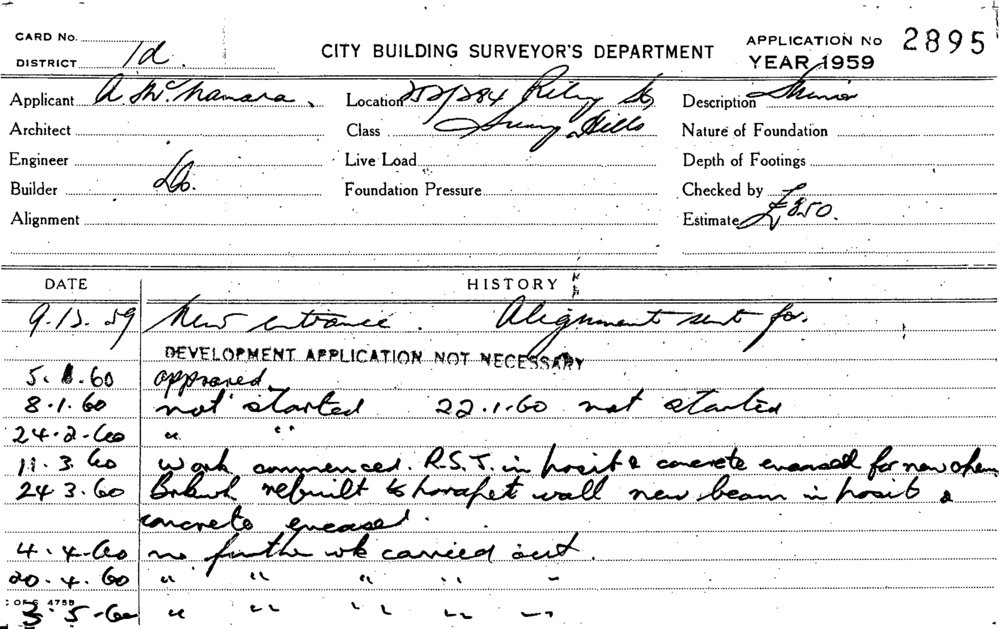 CARD No.
CITY BUILDING SURVEYOR'S DEPARTMENT
APPLICATION No 2895
DISTRICT 1d.
YEAR 1959
Applicant A McNamara.
Location 252/284 Riley St,
Description Minor
Architect
Class Surry Hills
Nature of Foundation
Engineer
Live Load
Depth of Footings
Builder Do.
Foundation Pressure
Checked by
Alignment
Estimate £850.
DATE HISTORY
9.12.59 New entrance. Alignment sent for.
DEVELOPMENT APPLICATION NOT NECESSARY
5.1.60 approved.
8.1.60 not started 22.1.60 not started
24.2.60 " "
11.3.60 work commenced. R.S.J. in posit & concrete encased for new
24.3.60 rebuilt to parapet wall new beam in posit &
concrete encased.
4.4.60 no further wk carried out.
20.4.60 " " " " "
4755
3.5.60 " " " " "